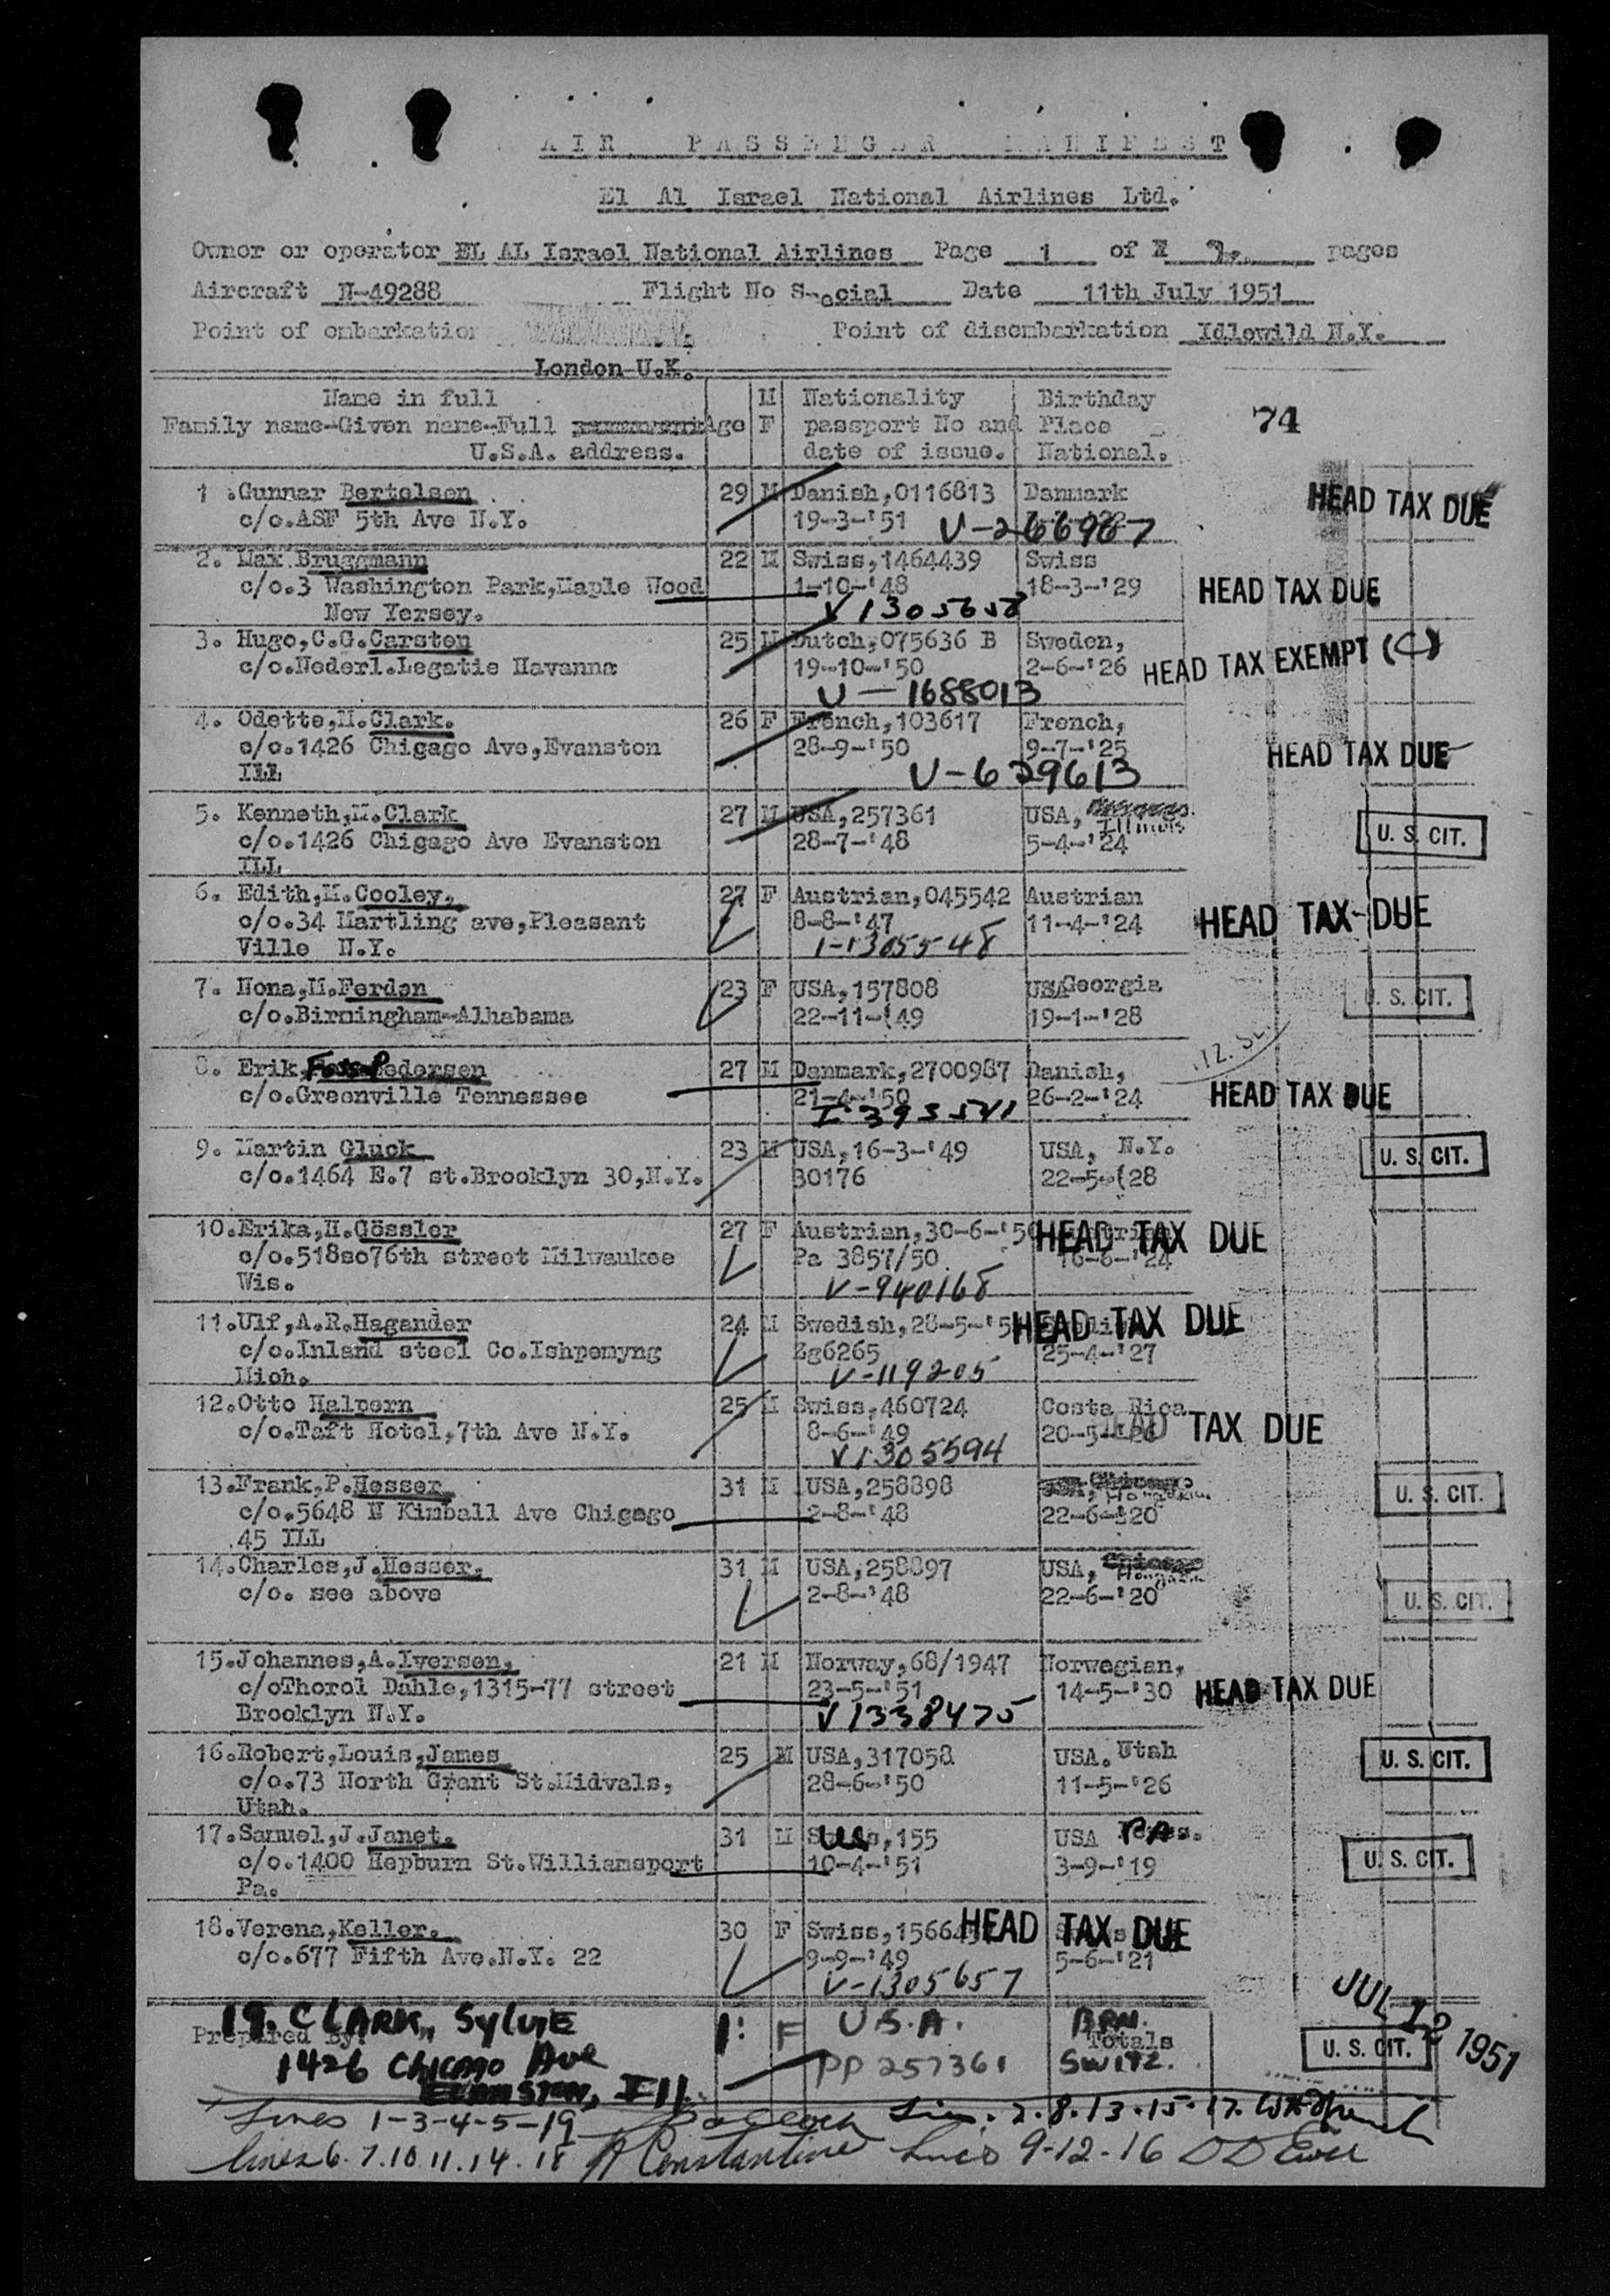 AIR PASSENGER MANIFEST
El Al Israel National Airlines Ltd.
Owner or operator EL AL Israel National Airlines Page 1 of pages
Aircraft N-49288 Flight No Special Date 11th July 1951
Point of embarkation Point of disembarkation Idlewild N.Y.
London U.K.
Name in full M Nationality Birthday
Family name-Given name-Full Age F passport No and Place
U.S.A. address. date of issue. National.
74
1 .Gunnar Bertelsen 29 M Danish,0116813 Danmark HEAD TAX DUE
c/o.ASF 5th Ave N.Y. 19-3-'51
V-266967
2. Max Bruggmann 22 M Swiss,1464439 Swiss
c/o.3 Washington Park,Maple Wood 1-10-'48 18-3-'29 HEAD TAX DUE
New Yersey. V1305658
3. Hugo,C.G.Carsten 25 M Dutch,075636 B Sweden,
c/o.Nederl.Legatie Havanna 19-10-'50 2-6-'26 HEAD TAX EXEMPT (C)
V-1688013
4. Odette,M.Clark. 26 F French,103617 French,
c/o.1426 Chigago Ave,Evanston 28-9-'50 9-7-'25 HEAD TAX DUE
ILL V-629613
5. Kenneth,M.Clark 27 M USA,257361 USA, Illinois
c/o.1426 Chigago Ave Evanston 28-7-'48 5-4-'24 U. S. CIT.
ILL
6. Edith,M.Cooley. 27 F Austrian,045542 Austrian
c/o.34 Martling ave,Pleasant 8-8-'47 11-4-'24 HEAD TAX DUE
Ville N.Y. 1-1305548
7. Nona,M.Ferden 23 F USA,157808 USA Georgia
c/o.Birmingham-Alhabama 22-11-(49 19-1-'28 U. S. CIT.
8. Erik, Pedersen 27 M Danmark,2700987 Danish,
c/o.Greenville Tennessee 21-4-'50 26-2-'24 HEAD TAX DUE
9. Martin Gluck 23 M USA,16-3-'49 USA, N.Y.
c/o.1464 E.7 st.Brooklyn 30,N.Y. 30176 22-5-(28 U. S. CIT.
10.Erika,H.Gössler 27 F Austrian,30-6-'50 HEAD TAX DUE
c/o.518so76th street Milwaukee Pa 3857/50 16-6-'24
Wis. V-940168
11.Ulf,A.R.Hagander 24 M Swedish,28-5-'5 HEAD TAX DUE
c/o.Inland steel Co.Ishpemyng Zg6265 25-4-'27
Mich. V-119205
12.Otto Halpern 25 M Swiss,460724 Costa Rica
c/o.Taft Hotel,7th Ave N.Y. 8-6-'49 20-5-'26 HEAD TAX DUE
V1305594
13.Frank,P.Hesser 31 M USA,258898
c/o.5648 N Kimball Ave Chigago 2-8-'48 22-6-'20 U. S. CIT.
45 ILL
14.Charles,J.Hesser. 31 M USA,258897 USA,
c/o. see above 2-8-'48 22-6-'20 U. S. CIT.
15.Johannes,A.Iversen, 21 M Norway,68/1947 Norwegian,
c/oThorol Dahle,1315-77 street 23-5-'51 14-5-'30 HEAD TAX DUE
Brooklyn N.Y. V1338475
16.Robert,Louis,James 25 M USA,317058 USA. Utah
c/o.73 North Grant St.Midvals, 28-6-'50 11-5-'26 U. S. CIT.
Utah.
17.Samuel,J.Janet. 31 M US,155 USA PA
c/o.1400 Hepburn St.Williamsport 10-4-'51 3-9-'19 U. S. CIT.
Pa.
18.Verena,Keller. 30 F Swiss,15664 HEAD TAX DUE
c/o.677 Fifth Ave.N.Y. 22 9-9-'49 5-6-'21
V-1305657
JUL 12 1951
19. CLARK, Sylvie 1 F U.S.A. BRN.
Prepared By: Totals
1426 Chicago Ave PP 257361 SWITZ. U. S. CIT.
EVANSTON, Ill.
Lines 1-3-4-5-19 Lines 2.8.13.15.17.
lines 6.7.10.11.14.18 A Constantine Lines 9-12-16